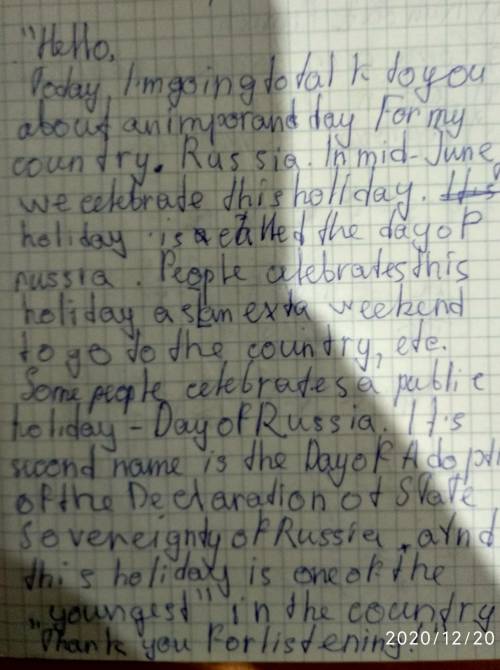 "Hello,
Today I'm going to talk to you
about an imporand day For my
country. Russia. In mid-June
we celebrate this holiday. Its
holiday is called the day of
russia. People celebrates this
holiday as an exta weekend
to go to the country, etc.
Some people celebrates a public
holiday - Day of Russia. It's
second name is the Day of Adopti
of the Declaration of State
Sovereignty of Russia. and
this holiday is one of the
"youngest" in the country
Thank you For listening.
2020/12/20